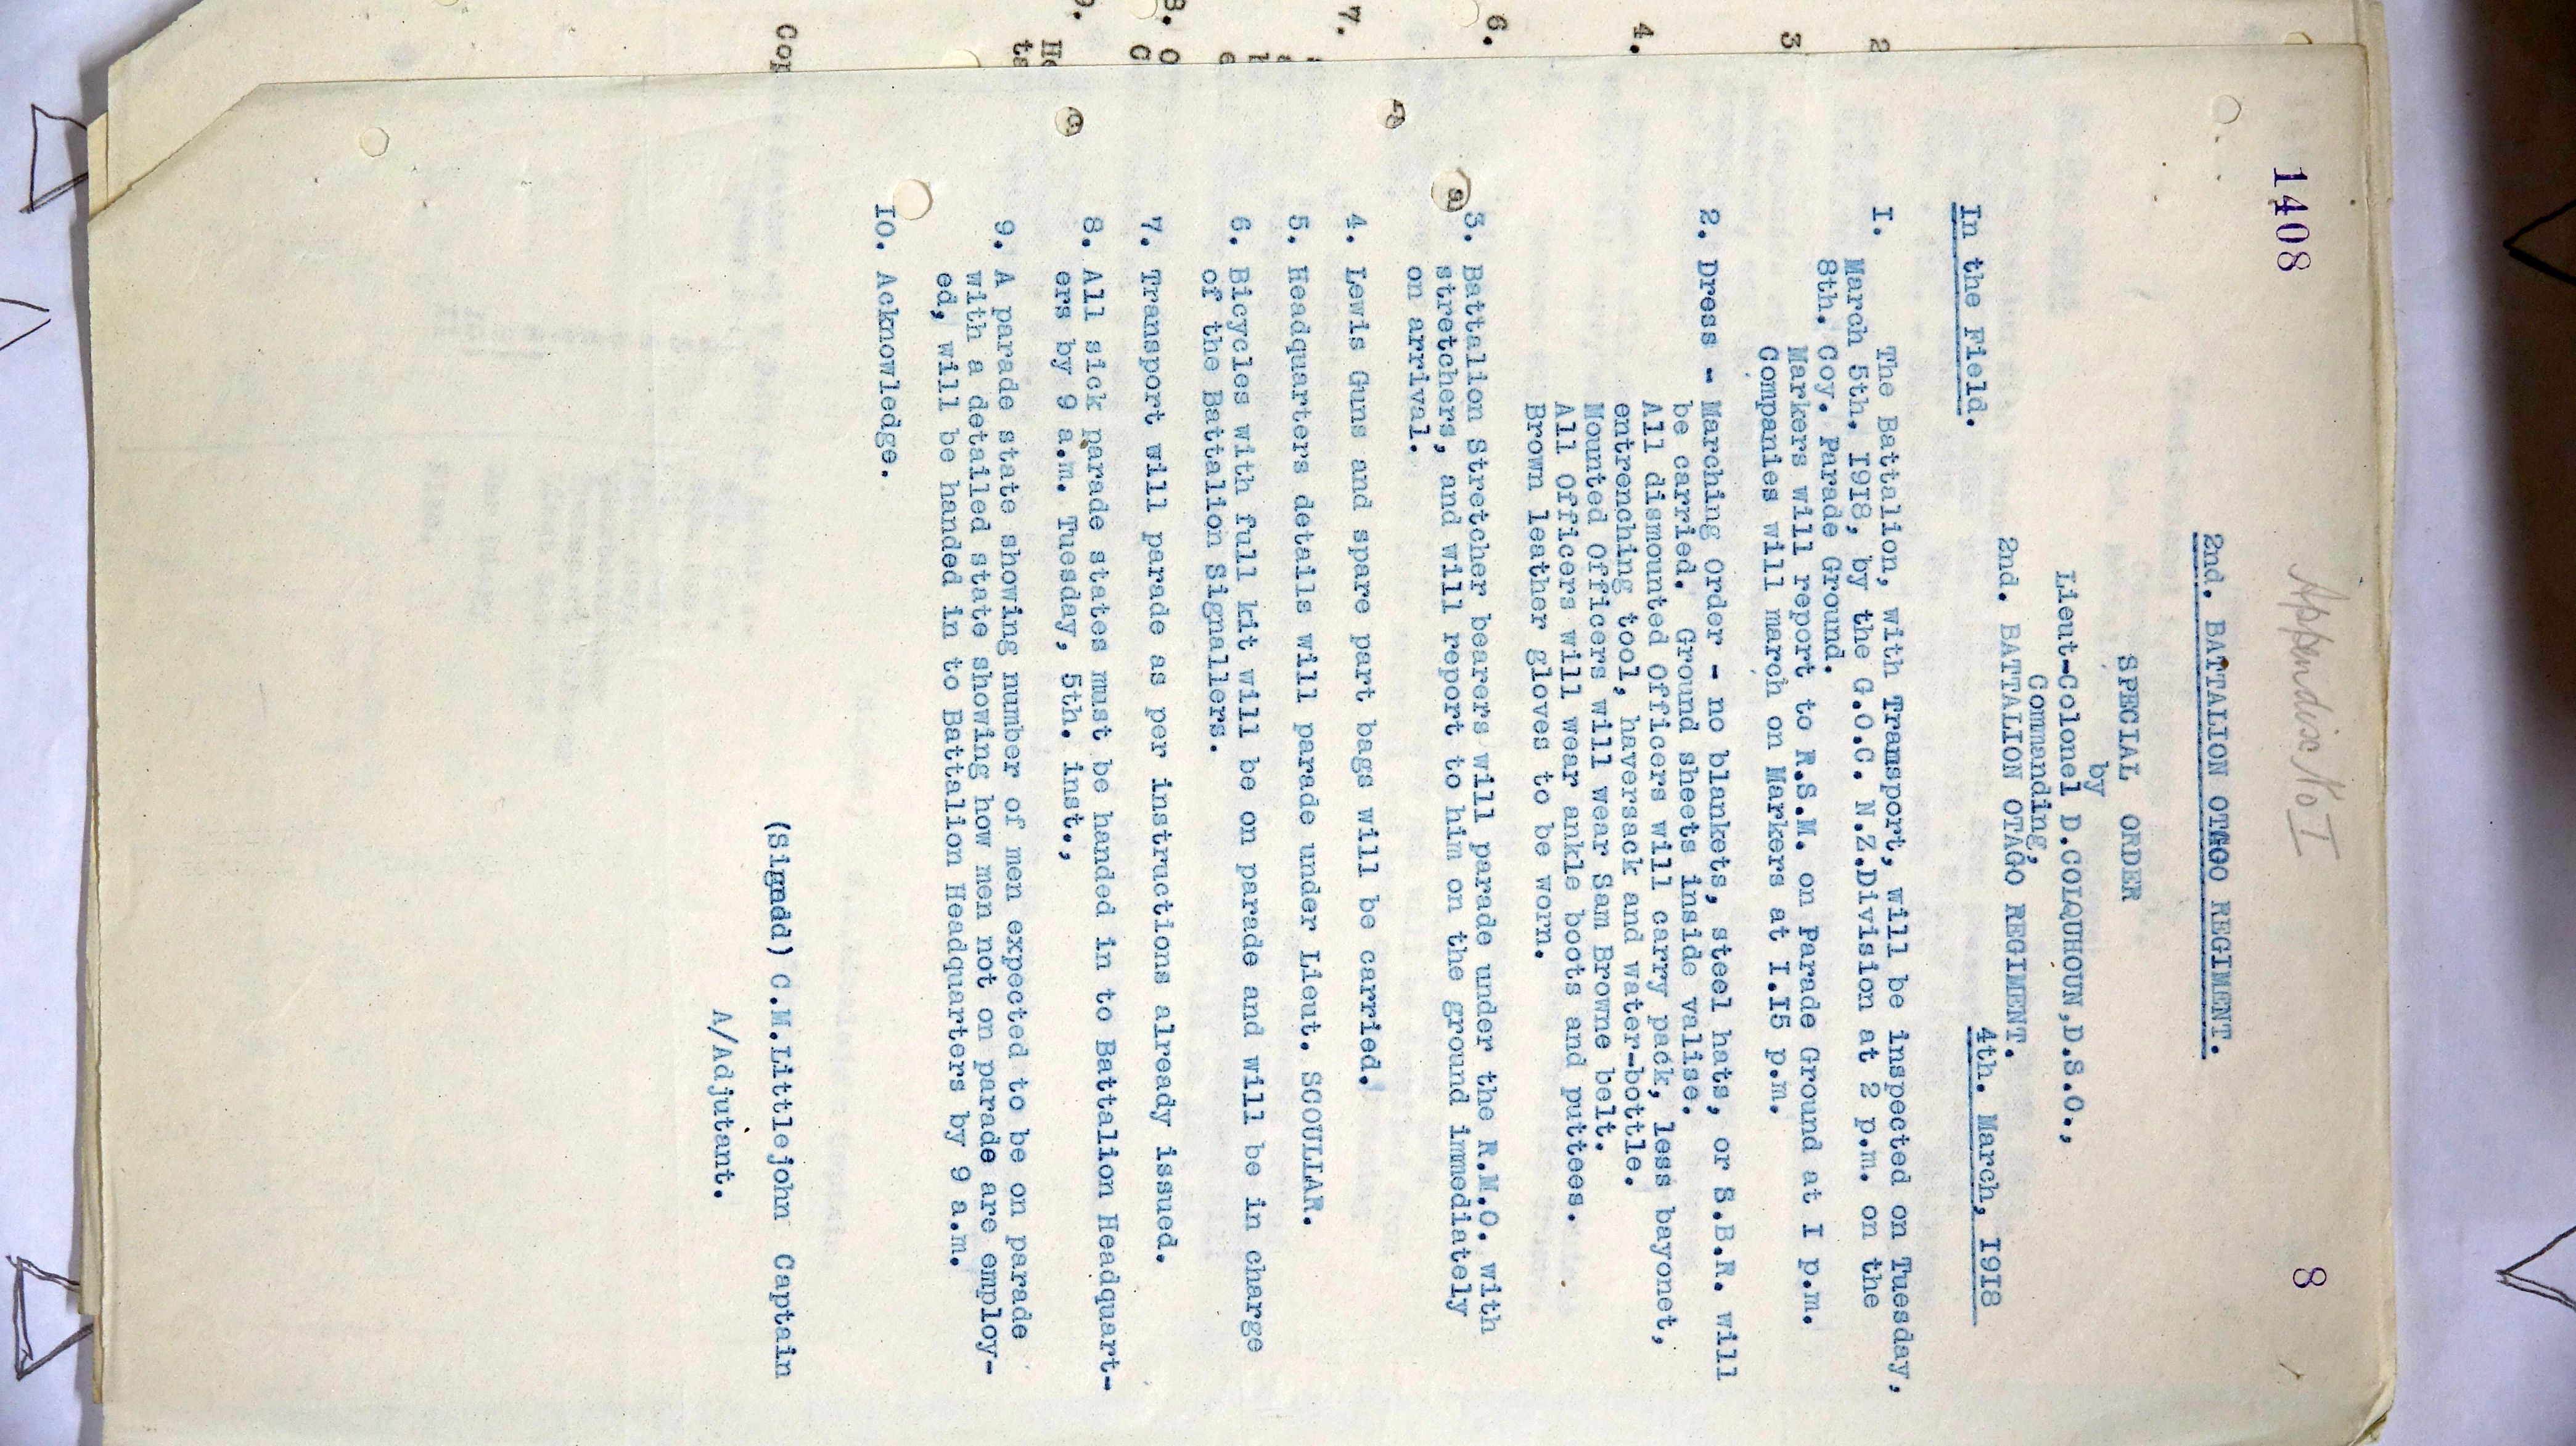 1408
8
Appendix No I
2nd. BATTALION OTAGO REGIMENT.
SPECIAL ORDER
by
Lieut-Colonel D.COLQUHOUN,D.S.O.,
Commanding,
2nd. BATTALION OTAGO REGIMENT.
In the Field.
4th. March, I9I8
I. The Battalion, with Transport, will be inspected on Tuesday,
March 5th. I9I8, by the G.O.C. N.Z.Division at 2 p.m. on the
8th. Coy. Parade Ground.
Markers will report to R.S.M. on Parade Ground at I p.m.
Companies will march on Markers at I.I5 p.m.
2. Dress - Marching Order - no blankets, steel hats, or S.B.R. will
be carried. Ground sheets inside valise.
All dismounted Officers will carry pack, less bayonet,
entrenching tool, haversack and water-bottle.
Mounted Officers will wear Sam Browne belt.
All Officers will wear ankle boots and puttees.
Brown leather gloves to be worn.
3. Battalion Stretcher bearers will parade under the R.M.O. with
stretchers, and will report to him on the ground immediately
on arrival.
4. Lewis Guns and spare part bags will be carried.
5. Headquarters details will parade under Lieut. SCOULLAR.
6. Bicycles with full kit will be on parade and will be in charge
of the Battalion Signallers.
7. Transport will parade as per instructions already issued.
8. All sick parade states must be handed in to Battalion Headquart-
ers by 9 a.m. Tuesday, 5th. inst.,
9. A parade state showing number of men expected to be on parade
with a detailed state showing how men not on parade are employ-
ed, will be handed in to Battalion Headquarters by 9 a.m.
I0. Acknowledge.
(Signdd) C.M.Littlejohn Captain
A/Adjutant.
2
3
4.
6.
7.
8. O
C
9. He
ta
Cop